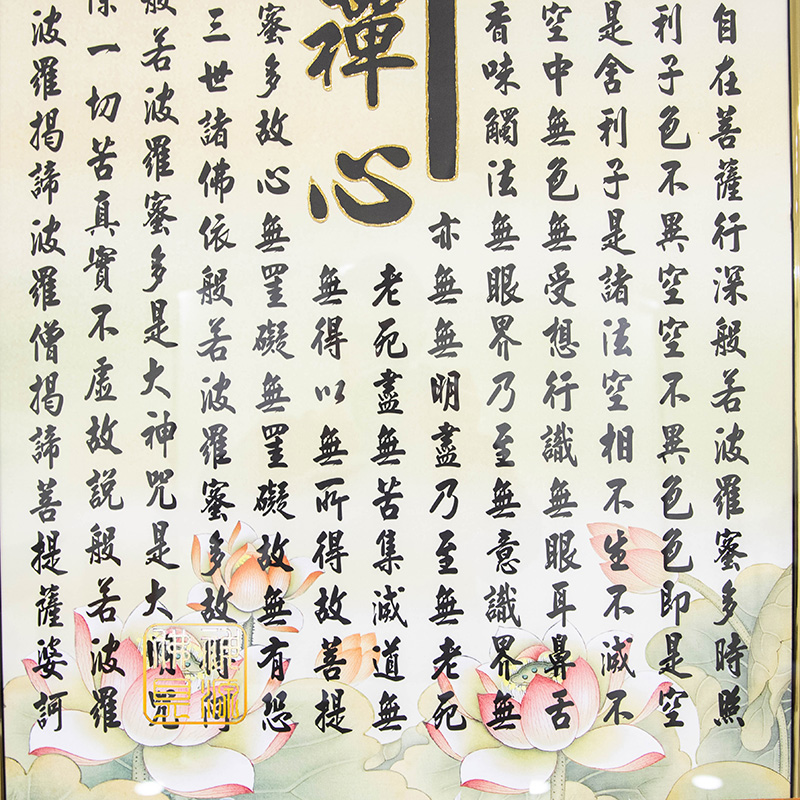 自在菩薩行深般若波羅蜜多時照
利子色不異空空不異色色即是空
是舍利子是諸法空相不生不滅不
空中無色無受想行識無眼耳鼻舌
香味觸法無眼界乃至無意識界無
亦無無明盡乃至無老死
禪心
老死盡無苦集滅道無
無得以無所得故菩提
蜜多故心無罣礙無罣礙故無有恐
三世諸佛依般若波羅蜜多故
般若波羅蜜多是大神咒是大明咒
除一切苦真實不虛故說般若波羅
波羅揭諦波羅僧揭諦菩提薩婆訶